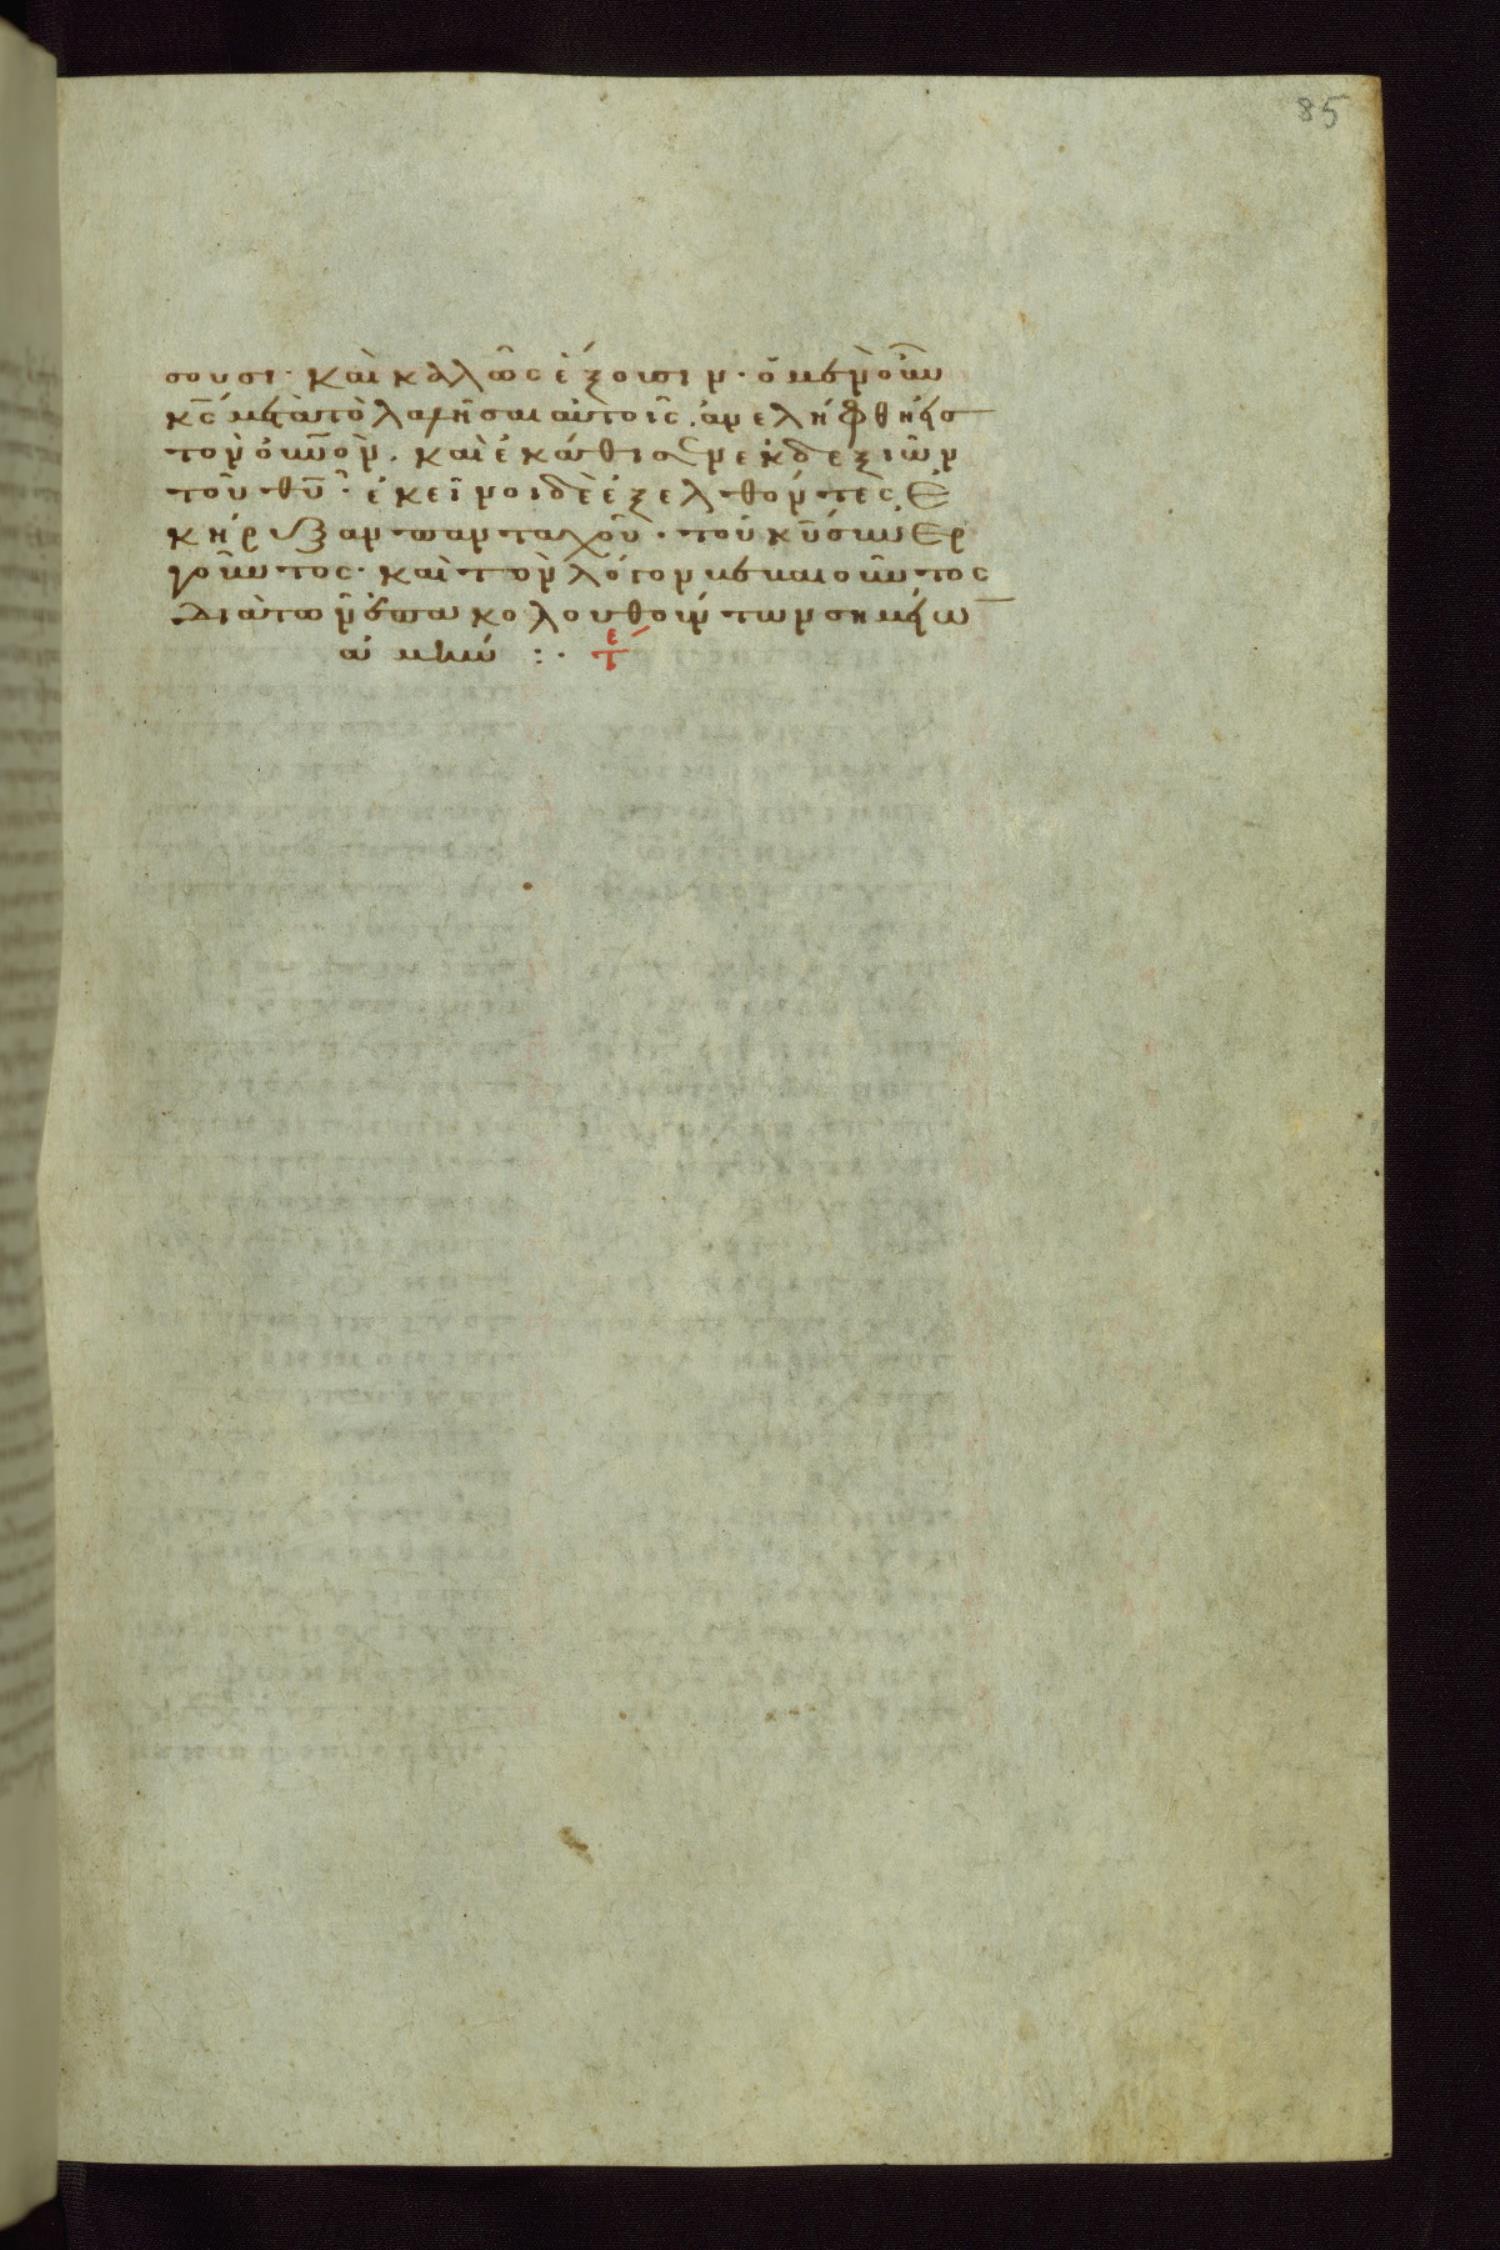 85
σουσι· καὶ καλῶς ἕξουσιν· ὁ μὲν οὖν
κ̅ς̅ μετὰ τὸ λαλῆσαι αὐτοῖς. ἀνελήφθη εἰσ
τὸν οὐ̅νο̅ν. καὶ ἐκάθισεν ἐκ δεξιῶν
τοῦ θ̅υ̅· ἐκεῖνοι δὲ ἐξελθόντες, ἐ
κήρυξαν πανταχοῦ· τοῦ κ̅υ̅ συνερ
γοῦντος· καὶ τὸν λόγον βεβαιοῦντος
διὰ τῶν ἐπακολουθούντων σημείω̅
ἀμήν :· τέ